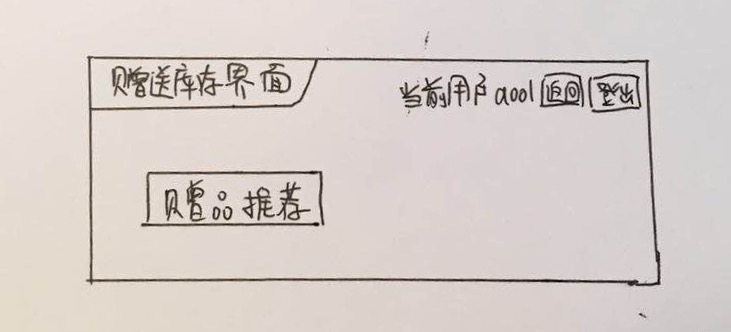 赠送库存界面
当前用户 a001 返回 登出
赠品推荐